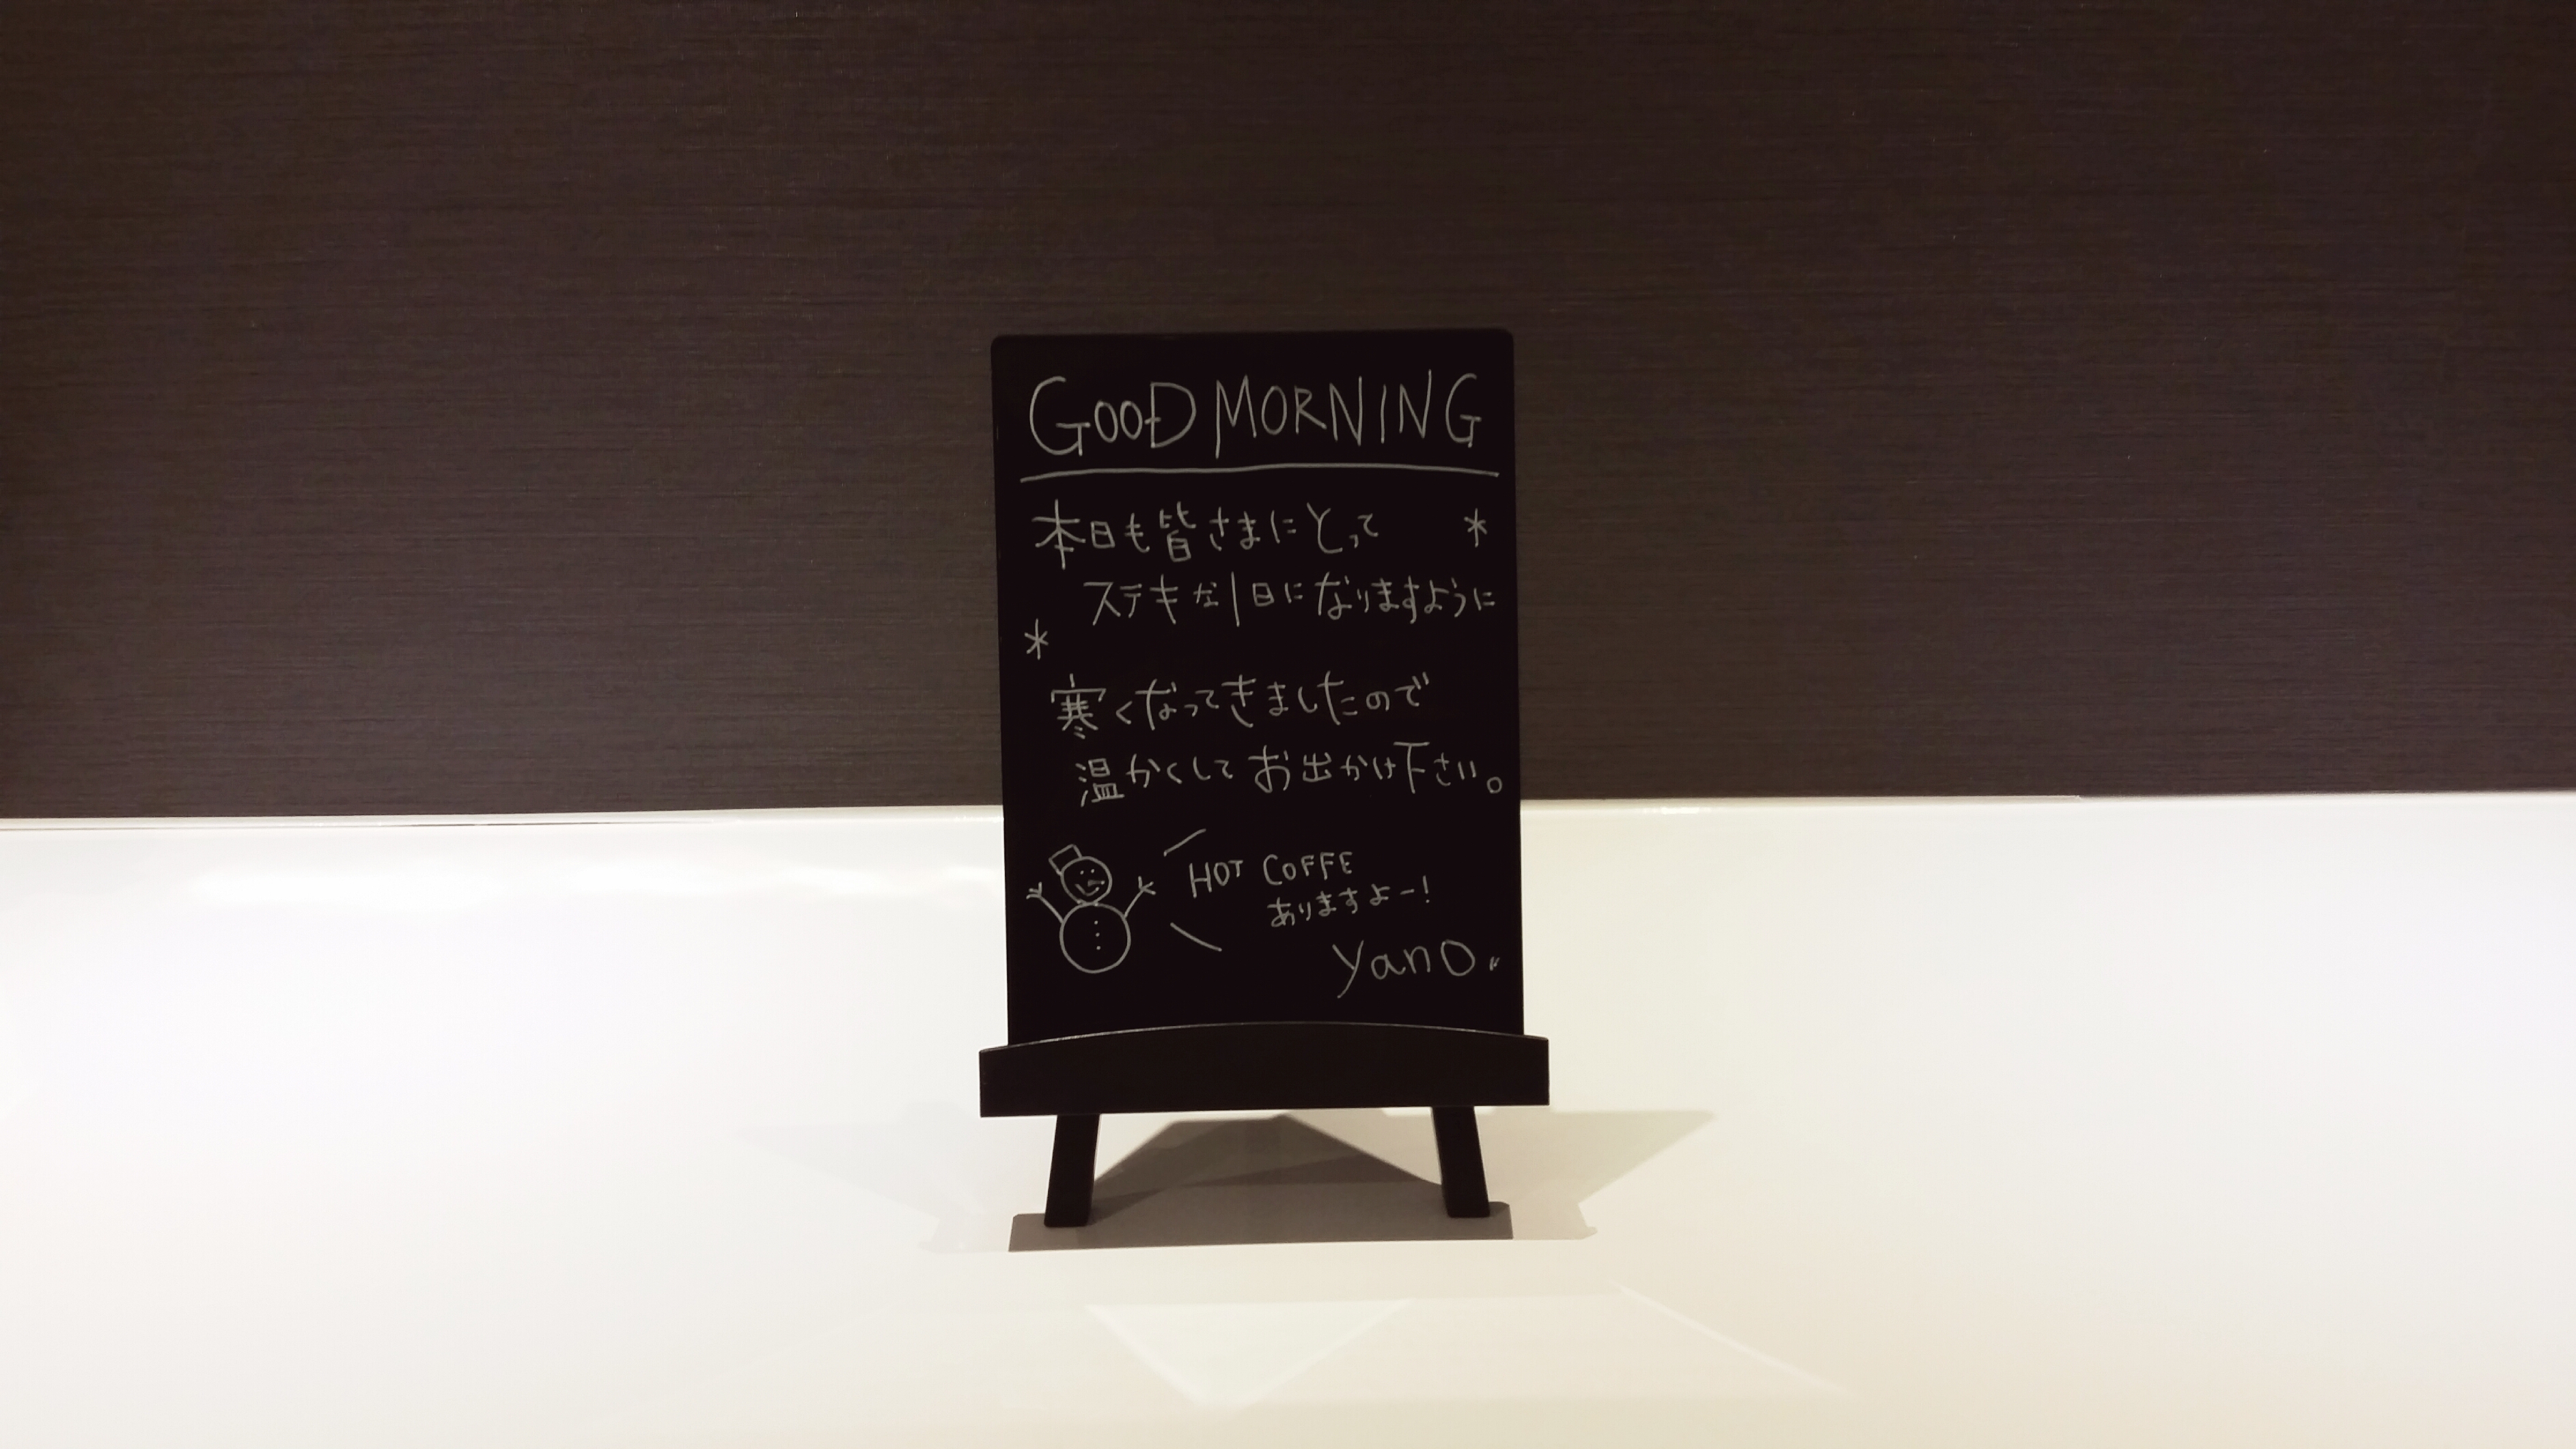 GOOD MORNING
本日も皆さまにとって *
ステキな1日になりますように
*
寒くなってきましたので
温かくしてお出かけ下さい。
HOT COFFE
ありますよー!
yano.